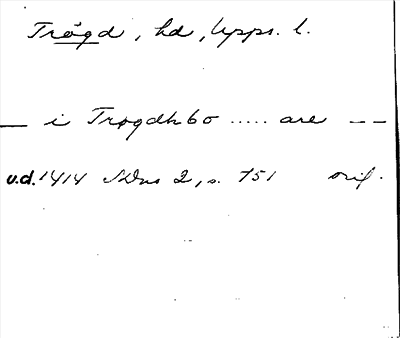 Trögd, hd, Upps. l.
— i Trøgdh bo ..... are — —
u.d. 1414 SDns 2, s. 751 orig.